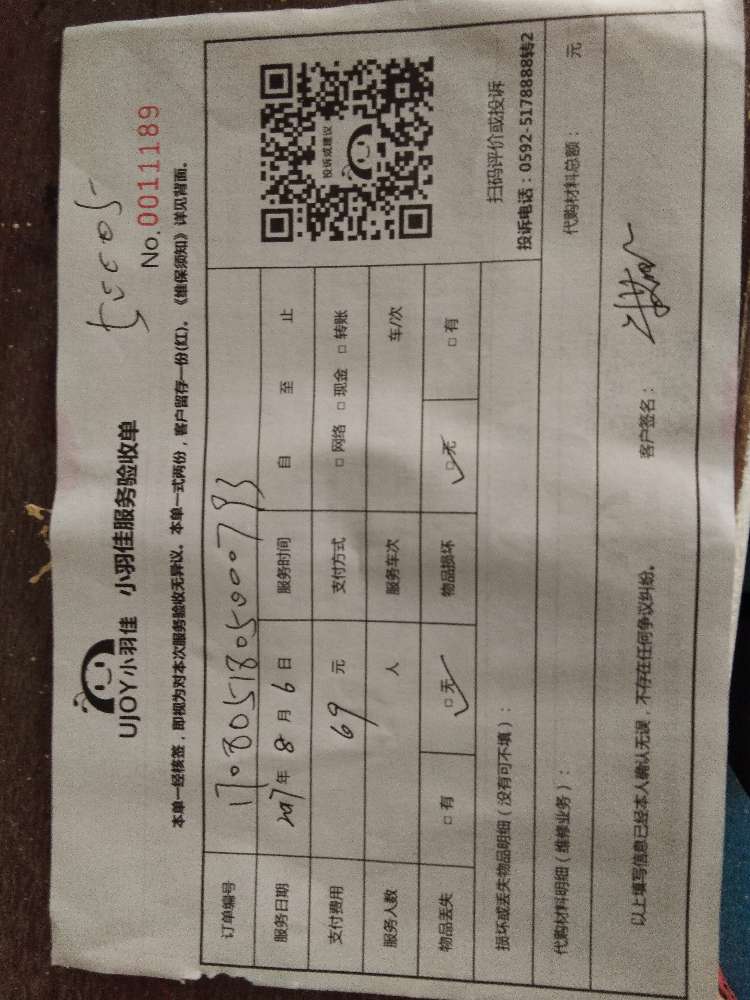 UJOY小羽佳 小羽佳服务验收单
No.0011189
本单一经核签，即视为对本次服务验收无异议。本单一式两份，客户留存一份(红)。《维保须知》详见背面。
订单编号 170805180500793
服务日期 2017年8月6日 服务时间 自 至 止
支付费用 69元 支付方式 □网络 □现金 □转账
服务人数 人 服务车次 车/次
物品丢失 □有 □无 物品损坏 □无 □有
投诉或建议
扫码评价或投诉
投诉电话：0592-5178888转2
损坏或丢失物品明细（没有可不填）：
代购材料明细（维修业务）： 代购材料总额： 元
以上填写信息已经本人确认无误，不存在任何争议纠纷。 客户签名：